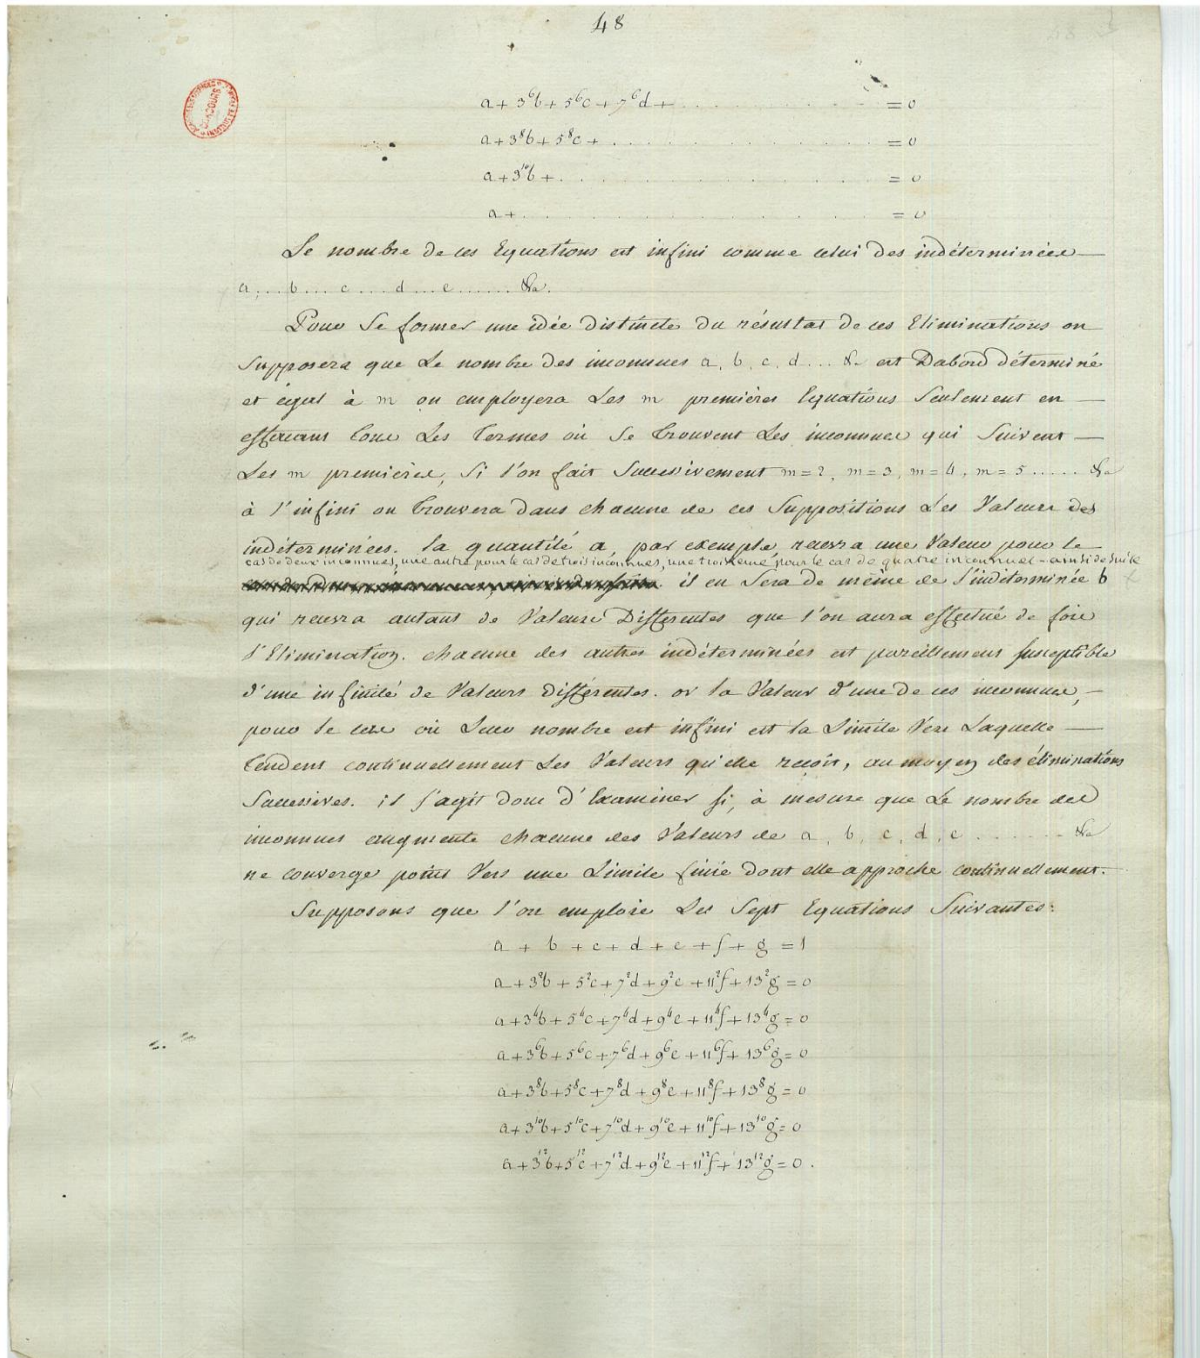 48
a + 3⁶b + 5⁶c + 7⁶d + . . . . . . . . . . = 0
a + 3⁸b + 5⁸c + . . . . . . . . . . . . = 0
a + 3¹⁰b + . . . . . . . . . . . . . . = 0
a + . . . . . . . . . . . . . . . . = 0
Le nombre de ces Equations est infini comme celui des indéterminées —
a, ... b ... c ... d ... e ....... &a.
Pour Se former une idée distincte du résultat de ces Eliminations on
Supposera que Le nombre des inconnues a, b, c, d ... &a est Dabord déterminé
et égal à m on employera Les m premières Equations Seulement en —
effaçant tous Les termes où Se trouvent Les inconnues qui Suivent —
Les m premières, Si l'on fait Successivement m = 2, m = 3, m = 4, m = 5 ..... &a
à l'infini on trouvera dans chacune de ces Suppositions Les Valeurs des
indéterminées. la quantité a, par exemple, recevra une Valeur pour le —
cas de deux inconnues, une autre pour le cas de trois inconnues, une troisième pour le cas de quatre inconnues - ainsi de suite
il en Sera de même de l'indéterminée b
qui recevra autant de Valeurs Differentes que l'on aura effectué de fois
l'Elimination. chacune des autres indéterminées est pareillement susceptible
d'une infinité de Valeurs différentes. or la Valeur d'une de ces inconnues, —
pour le cas où Leur nombre est infini est la Limite Vers Laquelle —
tendent continuellement Les Valeurs qu'elle reçoit, au moyen des éliminations
Successives. il s'agit donc d'Examiner si, à mesure que Le nombre des
inconnues augmente chacune des Valeurs de a, b, c, d, e ....... &a
ne converge point Vers une Limite finie dont elle approche continuellement.
Supposons que l'on emploie Les Sept Equations Suivantes:
a + b + c + d + e + f + g = 1
a + 3²b + 5²c + 7²d + 9²e + 11²f + 13²g = 0
a + 3⁴b + 5⁴c + 7⁴d + 9⁴e + 11⁴f + 13⁴g = 0
a + 3⁶b + 5⁶c + 7⁶d + 9⁶e + 11⁶f + 13⁶g = 0
a + 3⁸b + 5⁸c + 7⁸d + 9⁸e + 11⁸f + 13⁸g = 0
a + 3¹⁰b + 5¹⁰c + 7¹⁰d + 9¹⁰e + 11¹⁰f + 13¹⁰g = 0
a + 3¹²b + 5¹²c + 7¹²d + 9¹²e + 11¹²f + 13¹²g = 0.